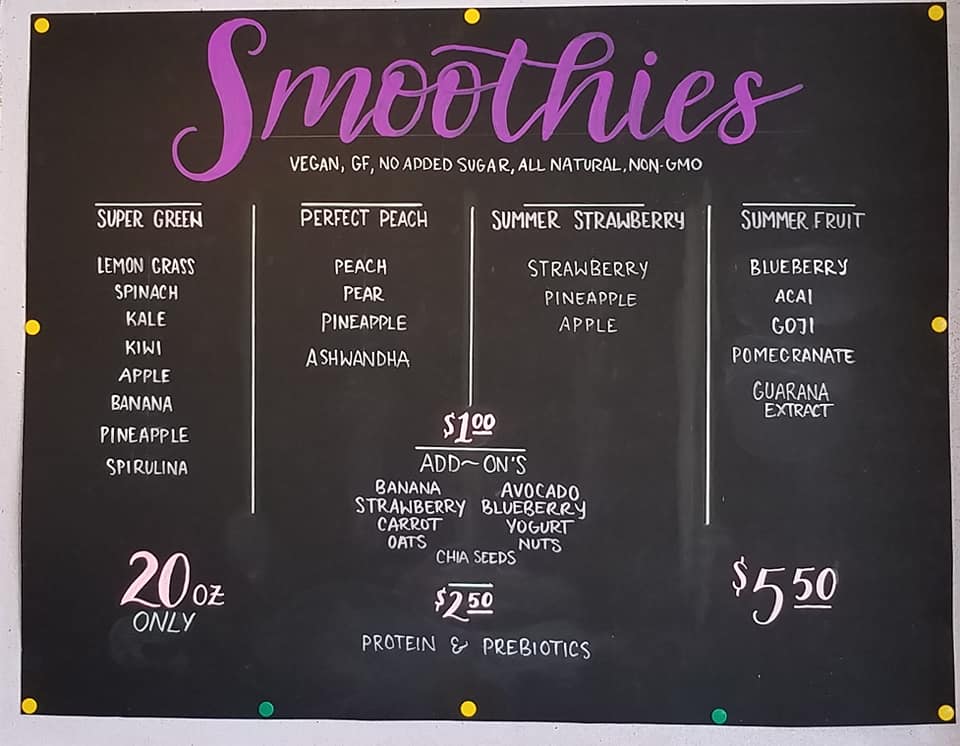 Smoothies
VEGAN, GF, NO ADDED SUGAR, ALL NATURAL, NON-GMO
SUPER GREEN
LEMON GRASS
SPINACH
KALE
KIWI
APPLE
BANANA
PINEAPPLE
SPIRULINA
PERFECT PEACH
PEACH
PEAR
PINEAPPLE
ASHWANDHA
SUMMER STRAWBERRY
STRAWBERRY
PINEAPPLE
APPLE
SUMMER FRUIT
BLUEBERRY
ACAI
GOJI
POMEGRANATE
GUARANA
EXTRACT
$1.00
ADD~ON'S
BANANA AVOCADO
STRAWBERRY BLUEBERRY
CARROT YOGURT
OATS NUTS
CHIA SEEDS
$2.50
PROTEIN & PREBIOTICS
20 OZ
ONLY
$5.50